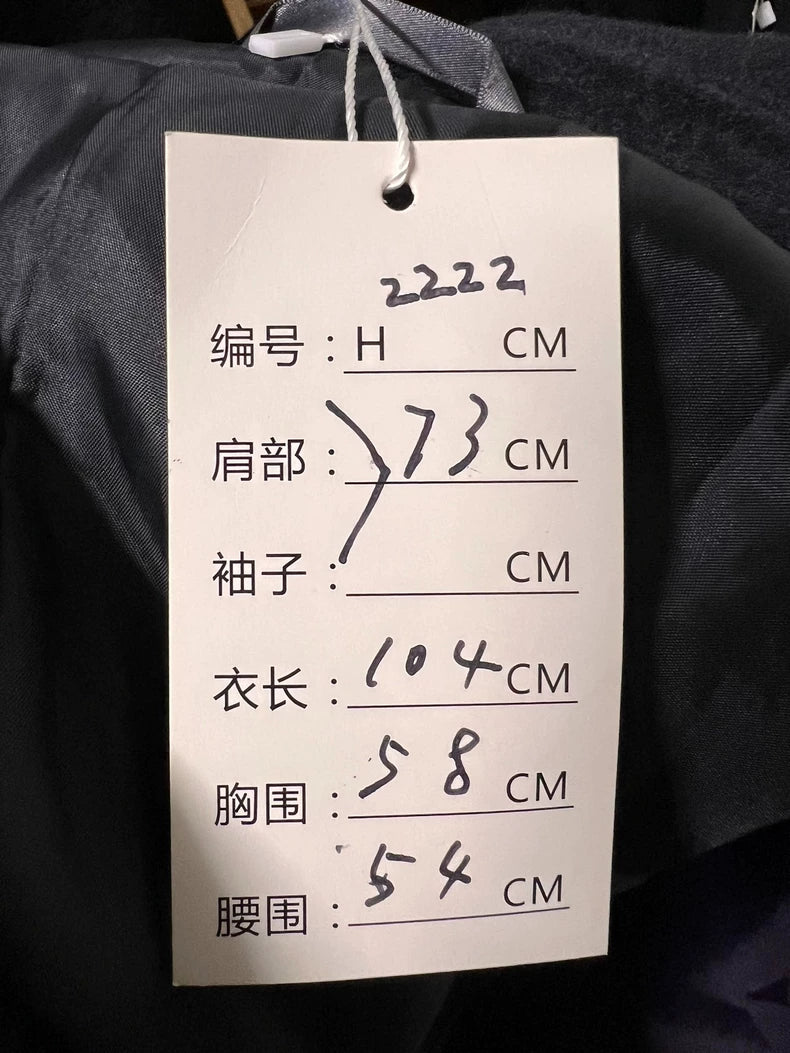 2222
编号：H CM
肩部：73 CM
袖子： CM
衣长：104 CM
胸围：58 CM
腰围：54 CM